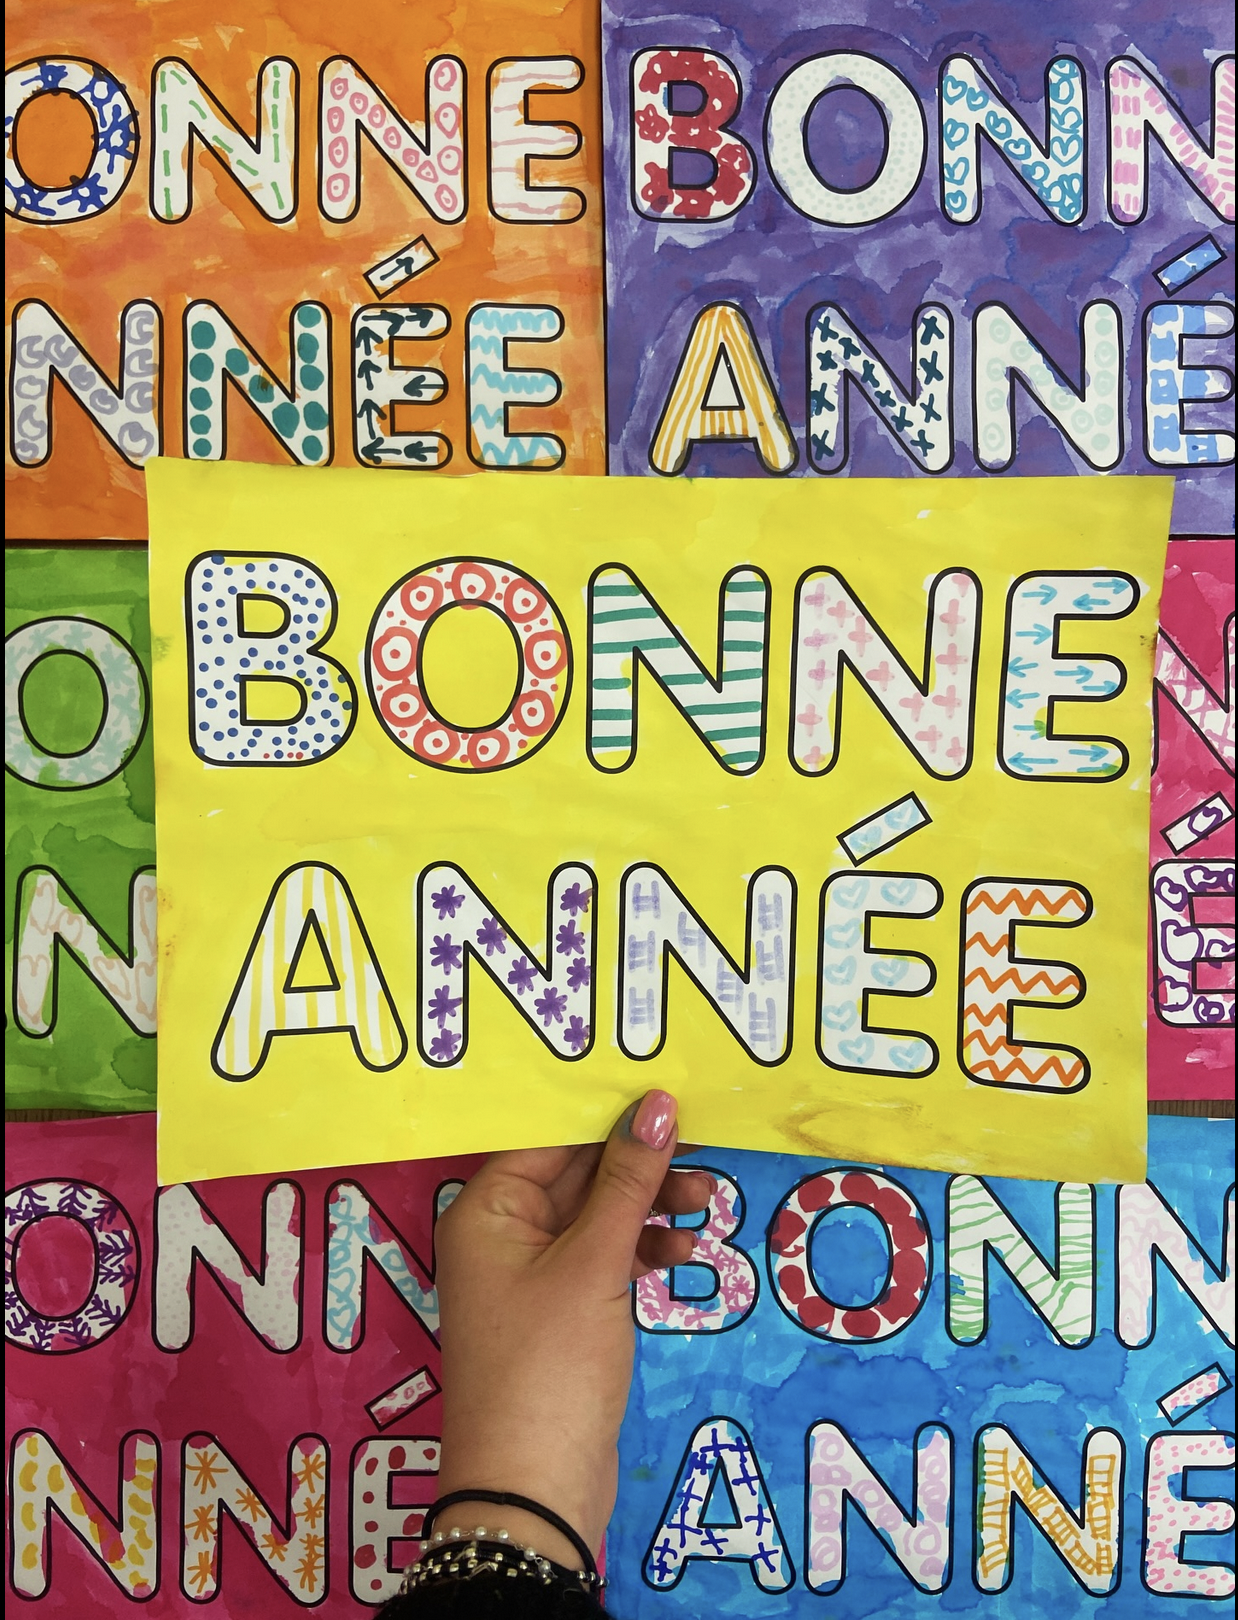 ONNE
NNÉE
BONN
ANNÉ
BONNE
ANNÉE
O
N
N
É
ONN
NNÉ
BONN
ANNÉ